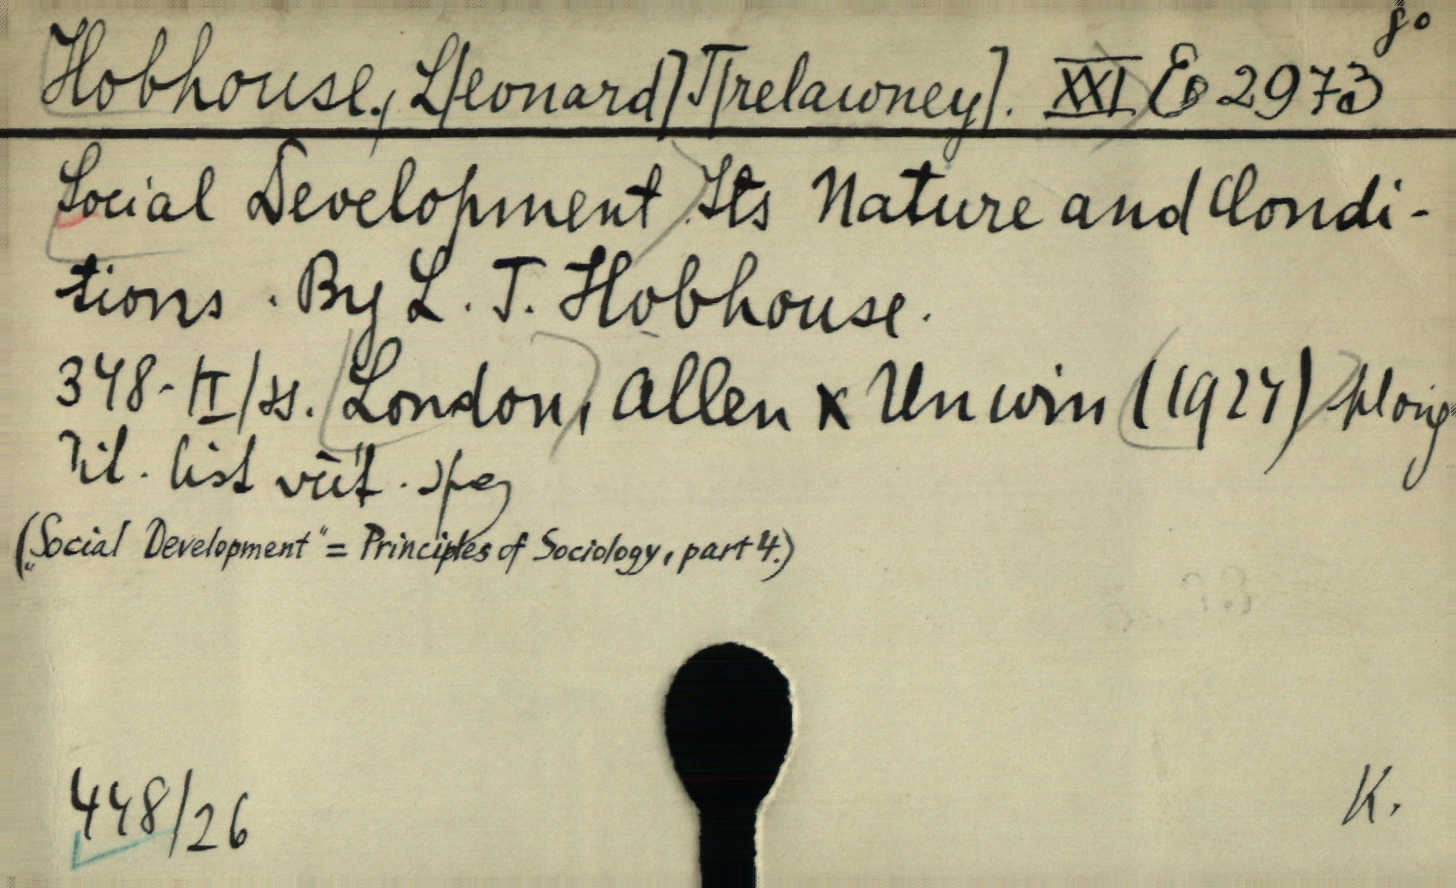 8o
Hobhouse, L[eonard] T[relawney]. XXI E 2973
Social Development Its Nature and Condi-
tions. By L. T. Hobhouse.
348-II/ss. London, Allen x Unwin (1924)
Tit. list
("Social Development" = Principles of Sociology, part 4.)
448/26
K.